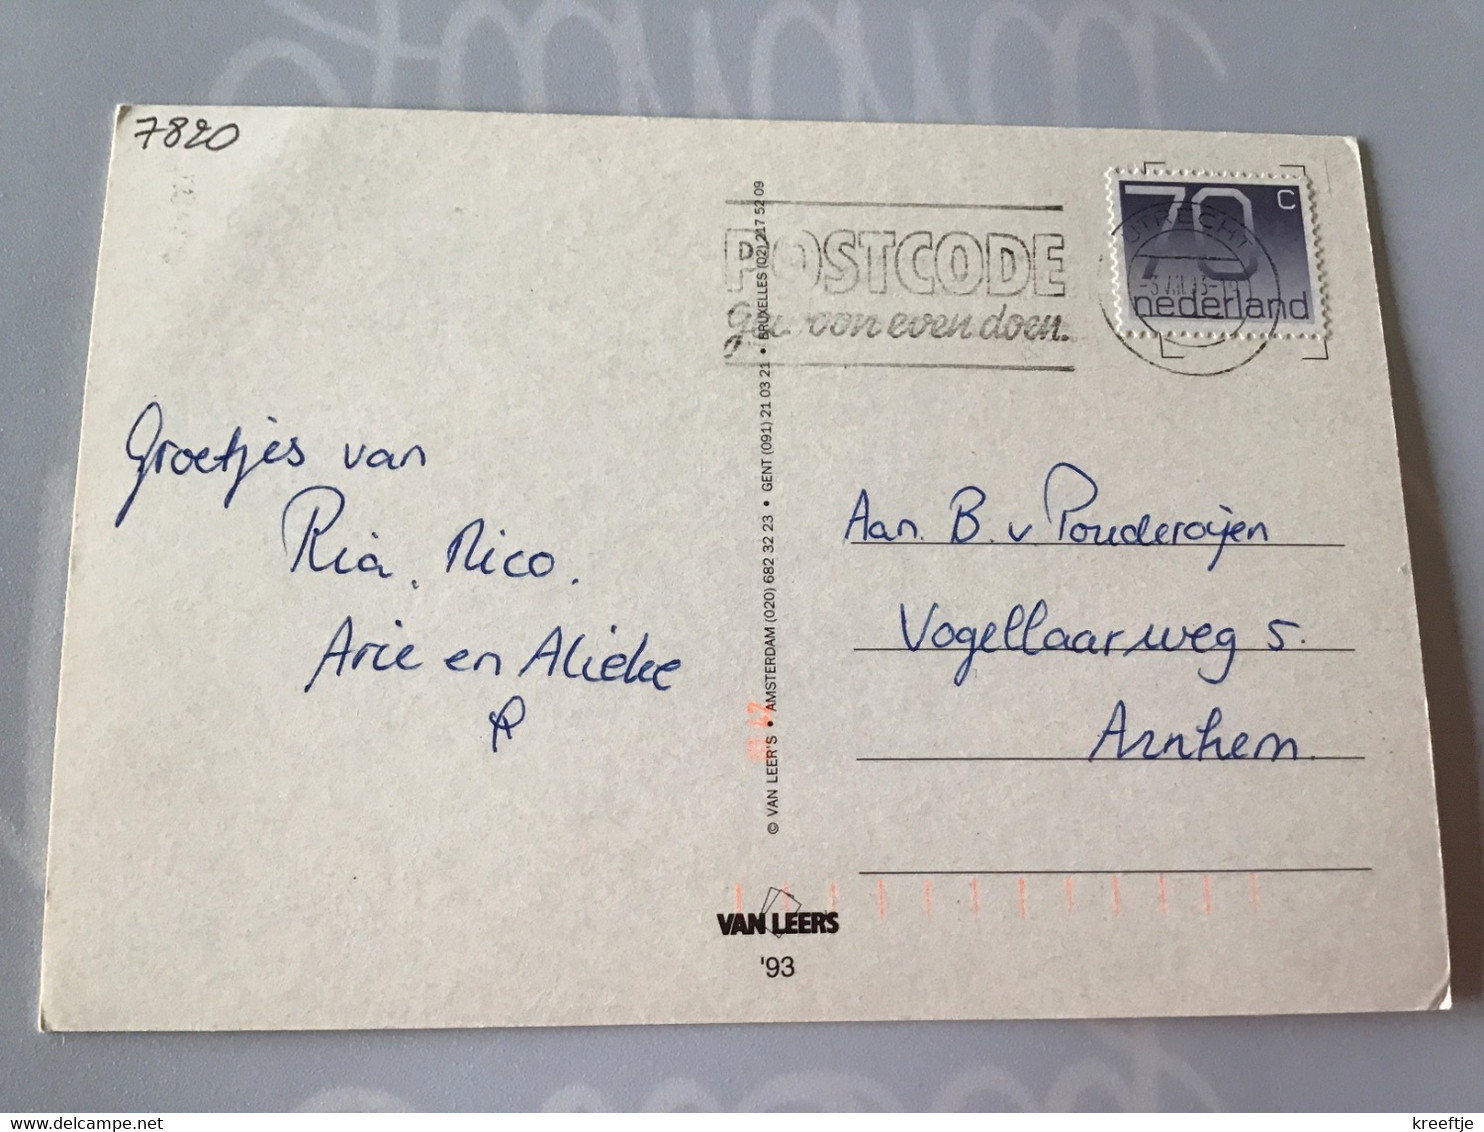 7820
POSTCODE
Gewoon even doen.
UTRECHT
70 c
nederland
Groetjes van
Ria, Nico.
Arie en Alieke
Aan. B. v Pouderoijen
Vogellaarweg 5.
Arnhem.
© VAN LEER'S • AMSTERDAM (020) 682 32 23 • GENT (091) 21 03 21 • BRUXELLES (02) 217 52 09
VAN LEER'S
'93
kreeftje
delcampe.net